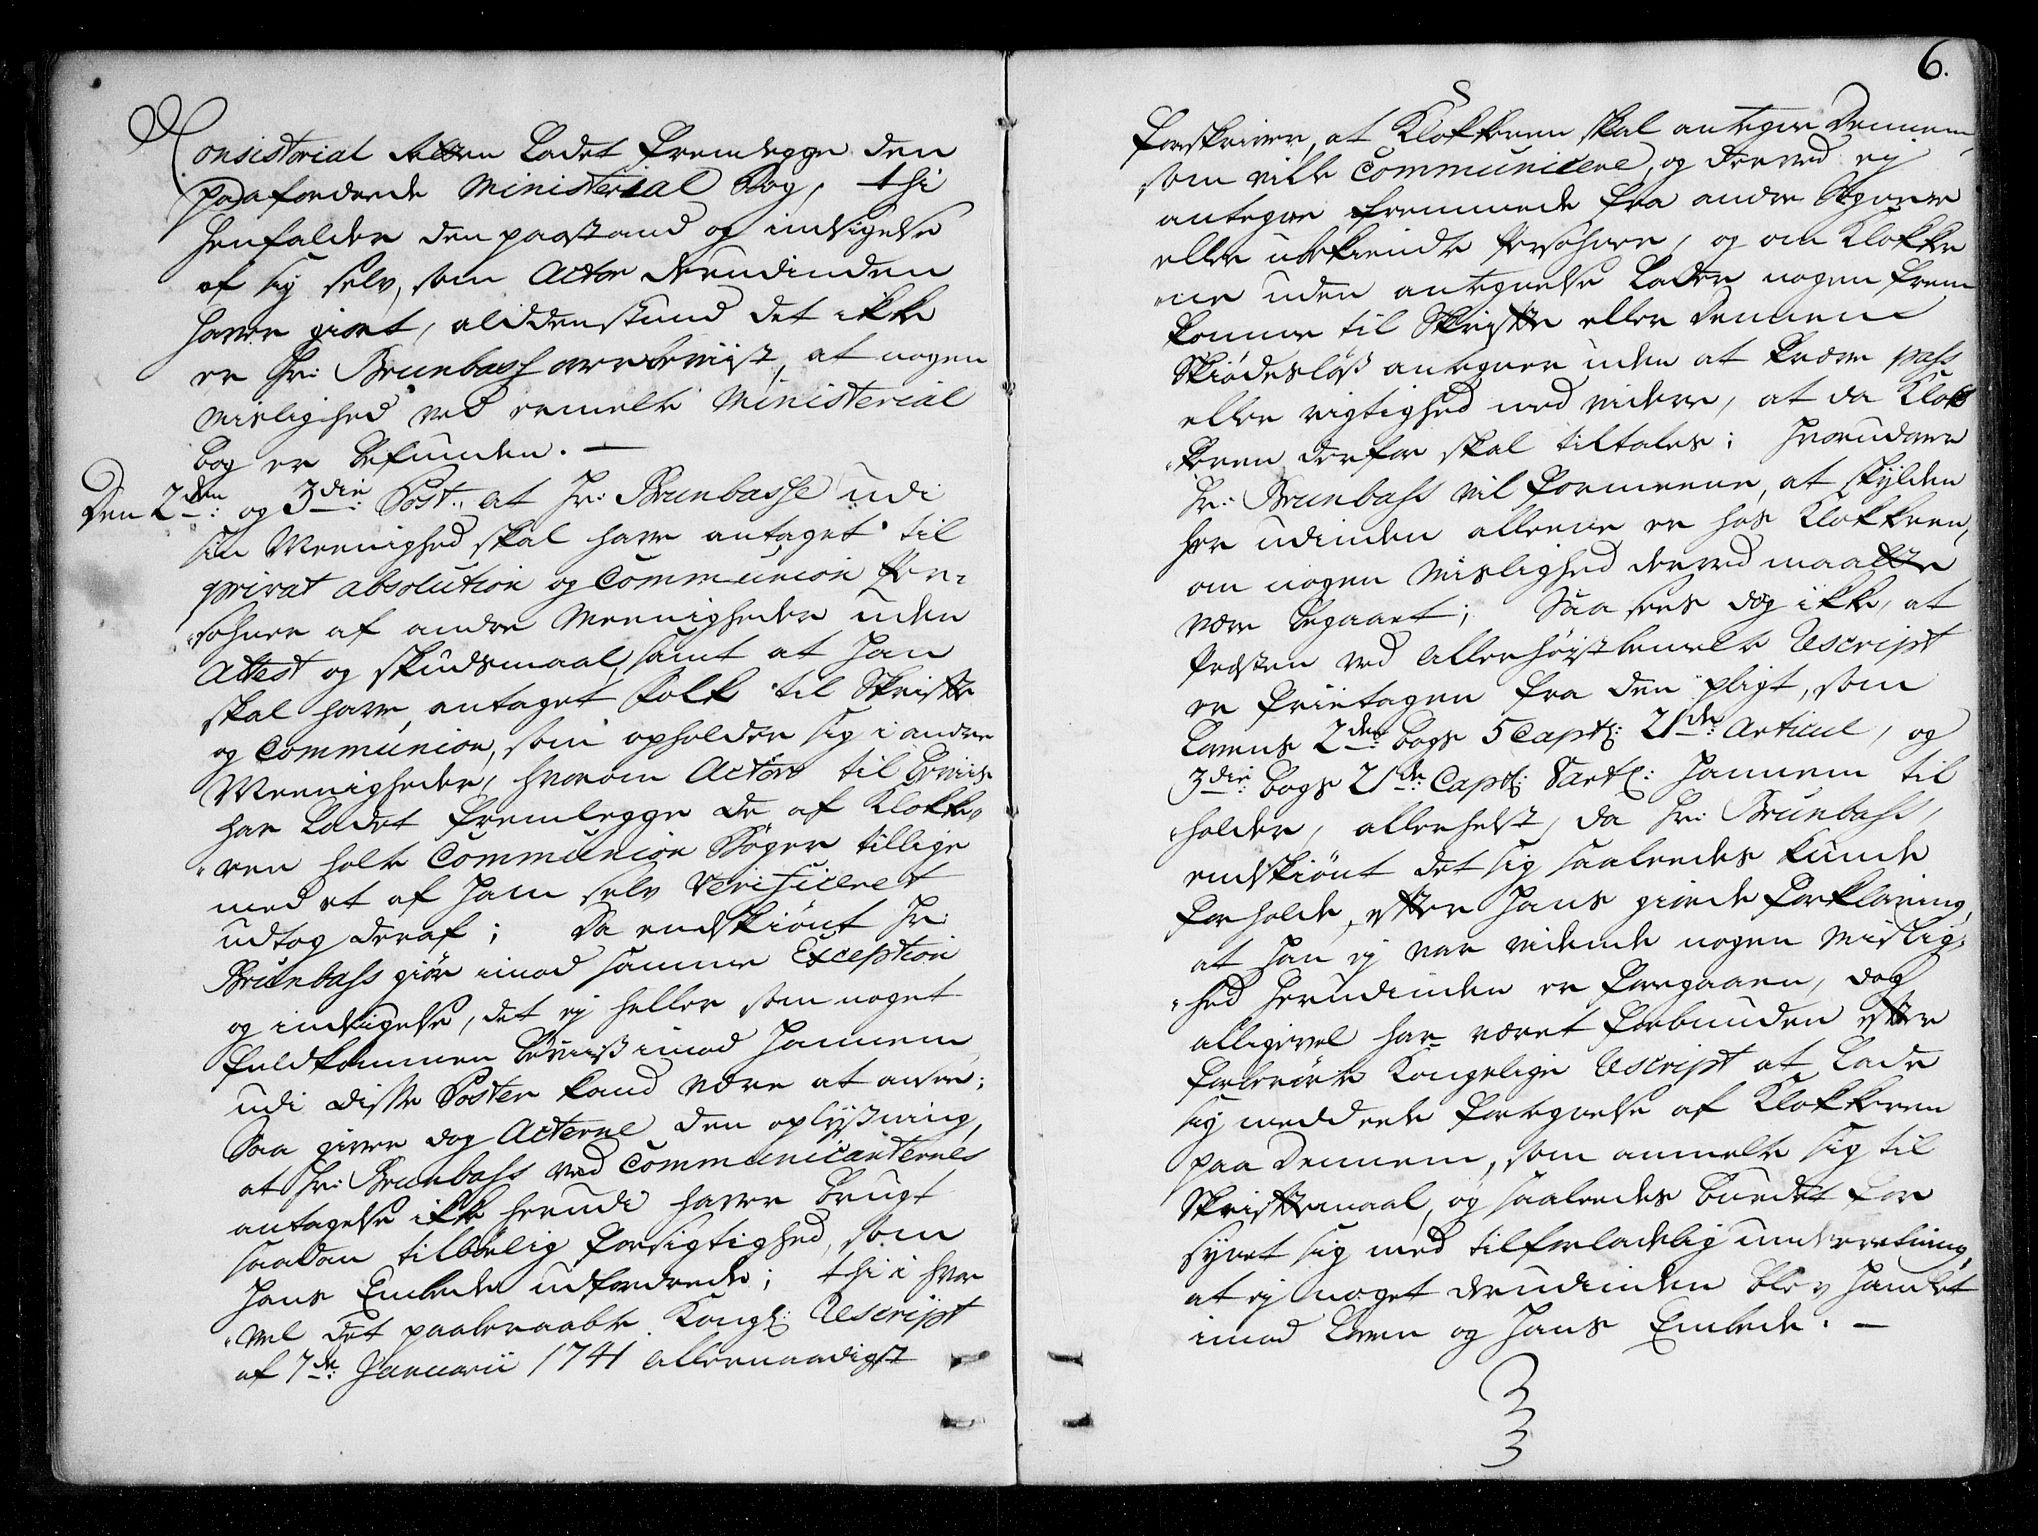 Consistorial Retten ladet fremlegge den
paafordrede Ministerial Bog, thi
henfalder den paastand og indsigelse
af sig selv, som Actor derudinden
haver giort, aldenstund det ikke
er Hr: Brunbass overbeviist, at nogen
mislighed ved ermelte Ministerial
Bog er befunden. —
Den 2den: og 3die: Post: at Hr: Brunbasse udi
sin Meenighed skal have antaget til
privat absolution og Communion Per-
sohner af andre Meenigheder uden
Attest og skudsmaal, samt at han
skal have antaget folk til Skrifte
og Communion, som opholder sig i andre
Meenigheder, hvorom Actor til Beviis
har ladet fremlegge de af Klokke-
ren holte Communion Bøger tillige
med et af ham selv Verificeret
udtog deraf; Da endskiønt Hr:
Brunbass giør imod samme Exception
og indsigelse, det ej heller som noget
fuldkommen Beviiß imod hannem
udi disse Poster kand være at ansee;
Saa giver dog Acterne den oplysning,
at Hr: Brunbass ved Communicanternes
antagelse ikke herudi haver brugt
saadan tilbørlig forsigtighed, som
hans Embede udfordrede; thi i hvor
vel det paaberaabte Kongl: Rescript
af 7de: Januarii 1741 allernaadigst
6.
forskriver, at Klokkeren skal antegne Dennem,
som ville Communicere, og derved ej
antegne fremmede fra andre Sogner
eller ubekiendte Persohner, og om Klokke
rne uden antegnelse lader nogen frem
komme til Skrifte eller dennem
Skiødesløß antegner uden at kræve pass
eller rigtighed med videre, at da Klok
keren derfor skal tiltales; hvorudover
Hr: Brunbass vil formeene, at skylden
her udinden alleene er hos Klokkeren,
om nogen Mislighed derved maatte
være begaaet; Saa sees dog ikke, at
Præsten ved allerhøistbemelte Rescript
er fritagen fra den pligt, som
Lovens 2den: Bogs 5 Capt: 21de: Articul, og
3die: Bogs 21de: Capt: Art: hannem til
holder, allerhelst, da Hr: Brunbass,
endskiønt det sig saaleedes kunde
forholde, efter hans giorde forklaring,
at han ej var vidende nogen Mislig-
hed herudinden er foregaaen, dog
alligevel har været forbunden efter
forberørte Kongelige Rescript at lade
sig meddeele fortegnelse af Klokkeren
paa Dennem, som anmelte sig til
Skriftemaal, og saaleedes burdet for
synet sig med tilforladelig underretning,
at ej noget derudinden blev handlet
imod Loven og hans Embede. —